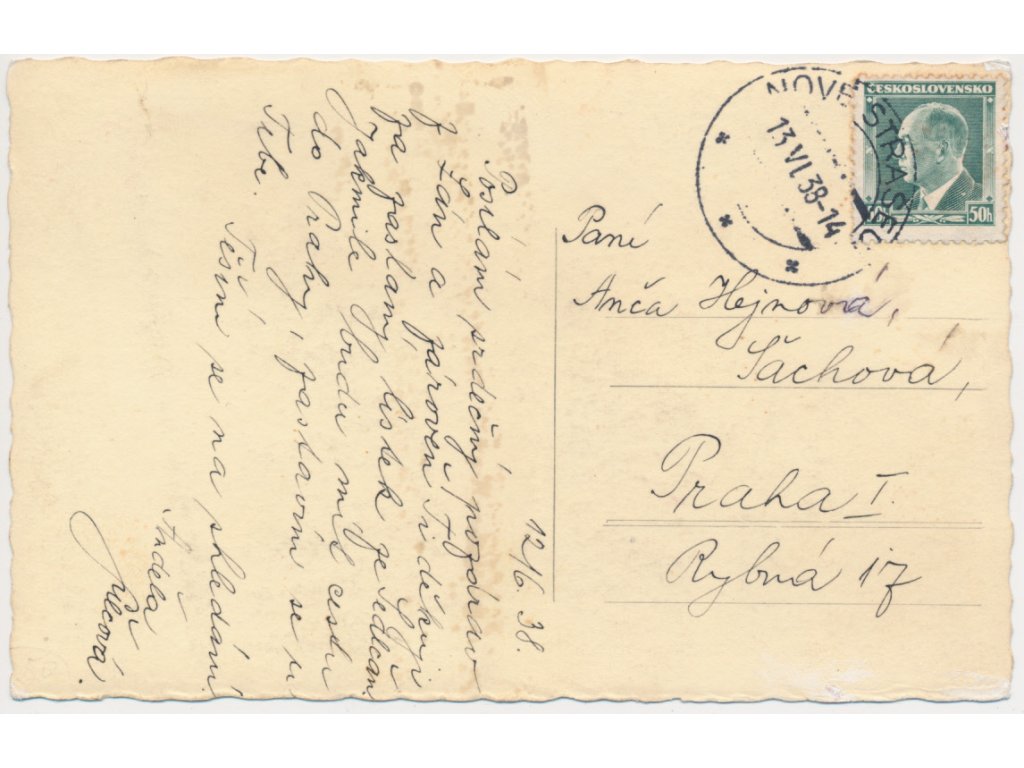 12/6. 38.
Posílám srdečný pozdrav
z Lán a zároveň Ti děkuji
za zaslaný lístek ze Sedlčan.
Jakmile budu mít cestu
do Prahy, zastavím se u
Tebe.
Těším se na shledání
Anděla
NOVÉ STRAŠECÍ
13 VI. 38-14
ČESKOSLOVENSKO
50h
Paní
Anča Hejnová,
Šáchová,
Praha I.
Rybná 17